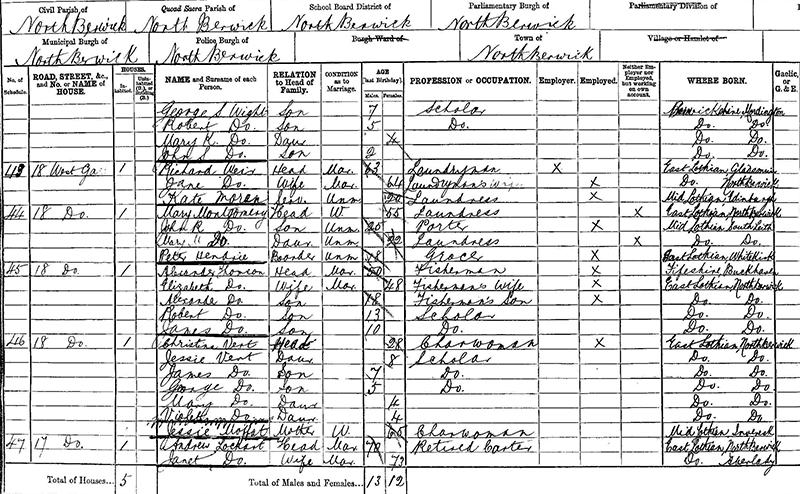 Civil Parish of Quoad Sacra Parish of School Board District of Parliamentary Burgh of Parliamentary Division of
North Berwick North Berwick North Berwick North Berwick
Municipal Burgh of Police Burgh of Burgh Ward of Town of Village or Hamlet of
North Berwick North Berwick North Berwick
No. of Schedule. ROAD, STREET, &c., and No. or NAME of HOUSE. HOUSES. Inhabited. NAME and Surname of each Person. RELATION to Head of Family. CONDITION as to Marriage. AGE [last Birthday]. Males. Females. PROFESSION or OCCUPATION. Employer. Employed. Neither Employer nor Employed, but working on own account. WHERE BORN. Gaelic, or G. & E.
George S Wight Son 7 Scholar Berwickshire, Mordington
Robert Do. Son 5 Do. Do. Do.
Mary K. Do. Daur 4 Do. Do.
John S. Do. Son 2 Do. Do.
43 18 West Ga 1 Richard Weir Head Mar 63 Laundryman X East Lothian, Gladsmuir
Jane Do. Wife Mar 64 Laundryman's Wife X Do. North Berwick
Kate Moran Serv Unm 20 Laundress X Mid Lothian, Edinburgh
44 18 Do. 1 Mary Montgomery Head W 55 Laundress X East Lothian, North Berwick
John R Do. Son Unm 25 Porter X Mid Lothian South Leith
Do. Daur Unm 22 Laundress X Do. Do.
Peter Hendrie Boarder Unm 18 Grocer X East Lothian, Whitekirk
45 18 Do. 1 Alexander Thomson Head Mar 50 Fisherman X Fifeshire, Buckhaven
Elizabeth Do. Wife Mar 48 Fisherman's Wife X East Lothian, North Berwick
Alexander Do Son 18 Fisherman's Son X Do. Do.
Robert Do Son 13 Scholar Do. Do.
James Do. Son 10 Do. Do. Do.
46 18 Do. 1 Christina Vert Head 28 Charwoman X East Lothian, North Berwick
Jessie Vert Daur 8 Scholar Do. Do.
James Do. Son 7 Do. Do. Do.
George Do. Son 5 Do. Do. Do.
Mary Do. Daur 4 Do. Do.
Violet Do. Daur 4 Do. Do.
Jessie Moffat Mother W. 65 Charwoman Mid Lothian Inveresk
47 17 Do. 1 Andrew Lockhart Head Mar 70 Retired Carter East Lothian, North Berwick
Janet Do. Wife Mar. 73 Do. Aberlady
Total of Houses... 5 Total of Males and Females... 13 12